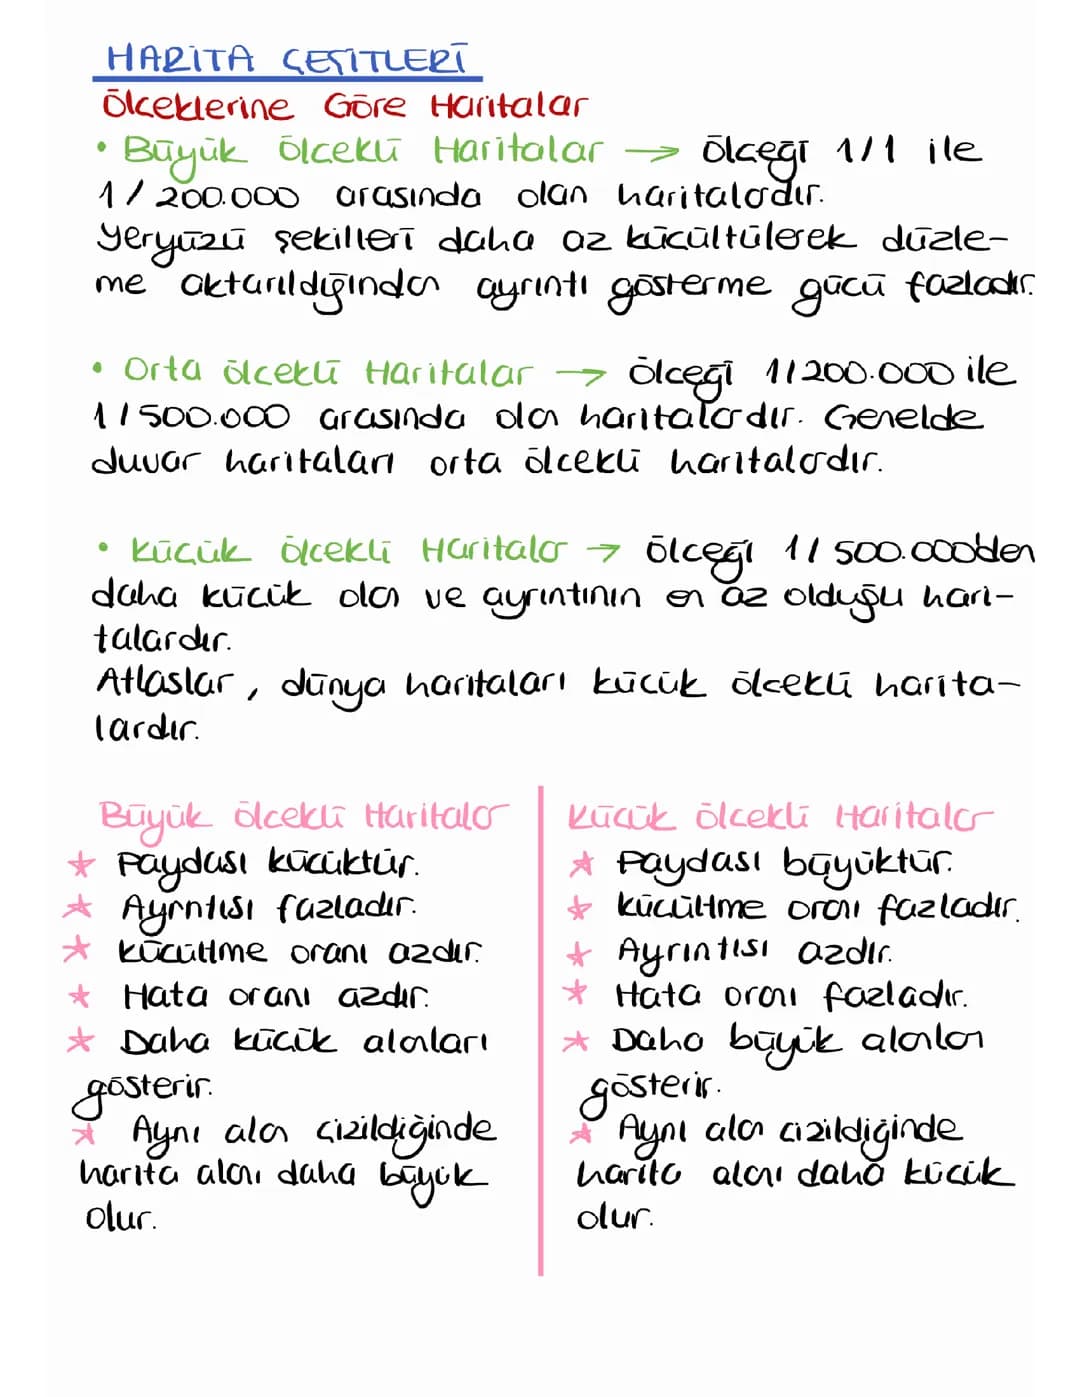 HARİTA ÇEŞİTLERİ
Ölçeklerine Göre Haritalar
• Büyük Ölçekli Haritalar → Ölçeği 1/1 ile
1/200.000 arasında olan haritalardır.
Yeryüzü şekilleri daha az küçültülerek düzle-
me aktarıldığından ayrıntı gösterme gücü fazladır.
• Orta ölçekli Haritalar → Ölçeği 1/200.000 ile
1/500.000 arasında olan haritalardır. Genelde
duvar haritaları orta ölçekli haritalardır.
• Küçük ölçekli Haritalar → Ölçeği 1/500.000'den
daha küçük olan ve ayrıntının en az olduğu hari-
talardır.
Atlaslar, dünya haritaları küçük ölçekli harita-
lardır.
Büyük ölçekli Haritalar
★ Paydası küçüktür.
★ Ayrntısı fazladır.
★ Küçültme oranı azdır.
★ Hata oranı azdır.
★ Daha küçük alanları
gösterir.
★ Aynı alan çizildiğinde
harita alanı daha büyük
olur.
Küçük ölçekli Haritalar
★ Paydası büyüktür.
★ Küçültme oranı fazladır.
★ Ayrıntısı azdır.
★ Hata oranı fazladır.
★ Daha büyük alanları
gösterir.
★ Aynı alan çizildiğinde
harita alanı daha küçük
olur.